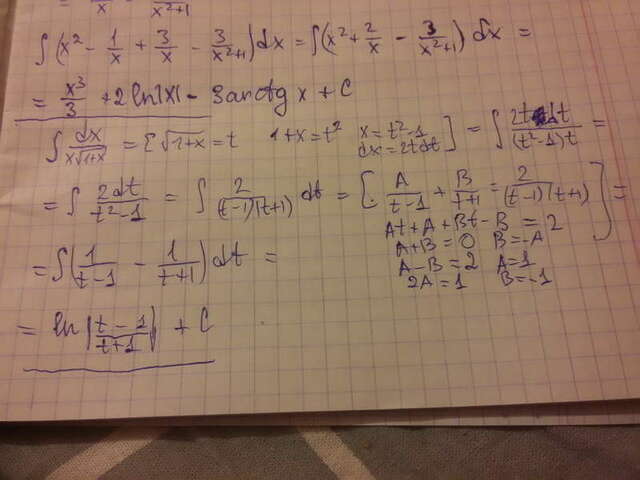 x²+1
∫(x² - 1/x + 3/x - 3/(x²+1))dx = ∫(x² + 2/x - 3/(x²+1)) dx =
= x³/3 + 2 ln|x| - 3arctg x + C
∫ dx/(x√(1+x)) = [√(1+x) = t 1+x = t² x = t²-1 dx = 2tdt] = ∫ 2tdt/((t²-1)t) =
= ∫ 2dt/(t²-1) = ∫ 2/((t-1)(t+1)) dt = [A/(t-1) + B/(t+1) = 2/((t-1)(t+1))
At + A + Bt - B = 2
A+B = 0 B = -A
A-B = 2 A = 1
2A = 1 B = -1] =
= ∫(1/(t-1) - 1/(t+1)) dt =
= ln|(t-1)/(t+1)| + C